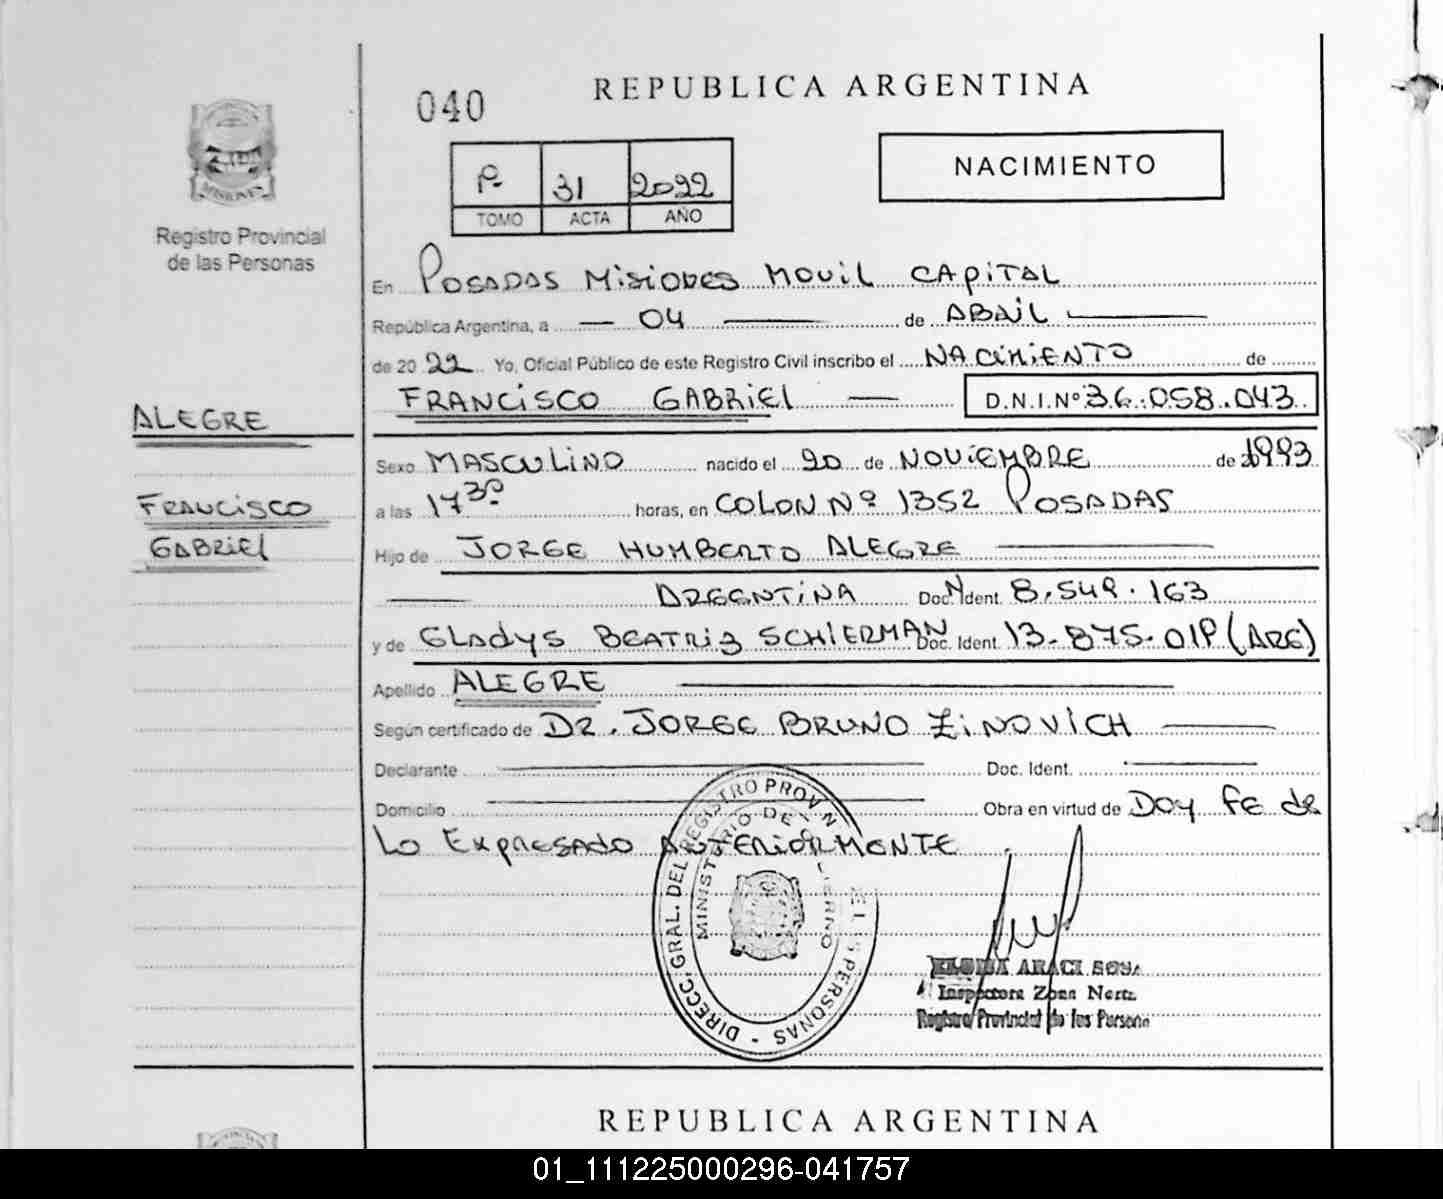 040
REPUBLICA ARGENTINA
NACIMIENTO
P- 31 2022
TOMO ACTA AÑO
MISIONES
Registro Provincial
de las Personas
En POSADAS MISIONES MOVIL CAPITAL
República Argentina, a 04 de ABRIL
de 20 22 Yo, Oficial Público de este Registro Civil inscribo el NACIMIENTO de
FRANCISCO GABRIEL D.N.I.Nº 36.058.043
ALEGRE
Sexo MASCULINO nacido el 20 de NOVIEMBRE de 1993
FRANCISCO
a las 17 30 horas, en COLON Nº 1352 POSADAS
GABRIEL
Hijo de JORGE HUMBERTO ALEGRE
ARGENTINA Doc. Ident. 8.549.163
y de GLADYS BEATRIZ SCHIERMAN Doc. Ident. 13-875-019 (ARG)
Apellido ALEGRE
Según certificado de DR. JORGE BRUNO ZINOVICH
Declarante Doc. Ident.
Domicilio Obra en virtud de DOY FE de
LO EXPRESADO ANTERIORMENTE
DIRECC. GRAL. DEL REGISTRO PROV PERSONAS
MINISTERIO DE
ARACI
Inspectora Zona Norte
Registro Provincial de las Persona
REPUBLICA ARGENTINA
01_111225000296-041757